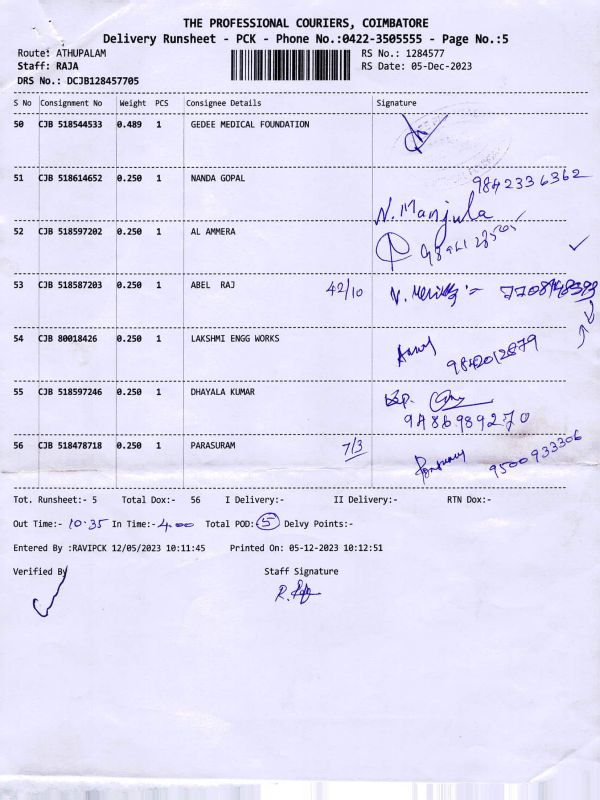 THE PROFESSIONAL COURIERS, COIMBATORE
Delivery Runsheet - PCK - Phone No.:0422-3505555 - Page No.:5
Route: ATHUPALAM RS No.: 1284577
Staff: RAJA RS Date: 05-Dec-2023
DRS No.: DCJB128457705
S No Consignment No Weight PCS Consignee Details Signature
50 CJB 518544533 0.489 1 GEDEE MEDICAL FOUNDATION
51 CJB 518614652 0.250 1 NANDA GOPAL 9842336362
N. Manjula
52 CJB 518597202 0.250 1 AL AMMERA
53 CJB 518587203 0.250 1 ABEL RAJ 42/10
54 CJB 80018426 0.250 1 LAKSHMI ENGG WORKS 9842012879
55 CJB 518597246 0.250 1 DHAYALA KUMAR
56 CJB 518478718 0.250 1 PARASURAM 7/3 9500933306
Tot. Runsheet:- 5 Total Dox:- 56 I Delivery:- II Delivery:- RTN Dox:-
Out Time:- 10.35 In Time:- 4.00 Total POD: 5 Delvy Points:-
Entered By :RAVIPCK 12/05/2023 10:11:45 Printed On: 05-12-2023 10:12:51
Verified By Staff Signature